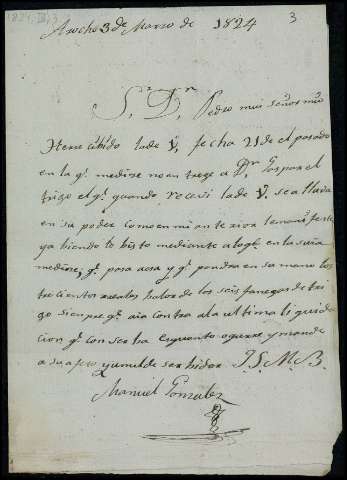 1824.III.3
Arocho 3 de Marzo de 1824
3
S.r D.n Pedro mui señor mio
He rrecibido la de V, fecha 21 de el pasado
en la q.e me dise no entrege a D.n Gaspar el
trigo el q.e quando recivi la de V. se allava
en su poder como en mi anterior la manifeste
ya biendo lo bisto mediante a lo q.e en la suia
me dise, q.e pasa aora y q.e pondra en su mano los
trecientos reales balor de las seis fanegas de tri
go siempre q.e aia contra a la ultima liquida
cion q.e con ser ha quanto ogurre y mande
a su afto y umilde serbidor J.S.M.B.
Manuel Gonzalez